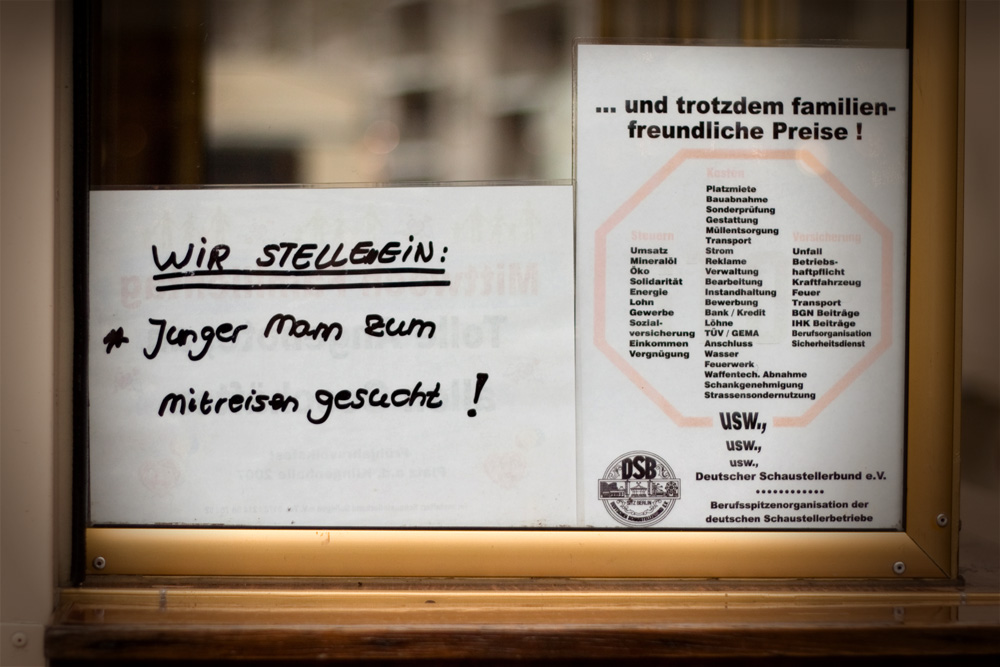 WIR STELLEN EIN:
* Junger Mann zum
mitreisen gesucht !
... und trotzdem familien-
freundliche Preise !
Kosten
Platzmiete
Bauabnahme
Sonderprüfung
Gestattung
Müllentsorgung
Transport
Strom
Reklame
Verwaltung
Bearbeitung
Instandhaltung
Bewerbung
Bank / Kredit
Löhne
TÜV / GEMA
Anschluss
Wasser
Feuerwerk
Waffentech. Abnahme
Schankgenehmigung
Strassensondernutzung
Steuern
Umsatz
Mineralöl
Öko
Solidarität
Energie
Lohn
Gewerbe
Sozial-
versicherung
Einkommen
Vergnügung
Versicherung
Unfall
Betriebs-
haftpflicht
Kraftfahrzeug
Feuer
Transport
BGN Beiträge
IHK Beiträge
Berufsorganisation
Sicherheitsdienst
usw.,
usw.,
usw.,
DSB
SITZ BERLIN
DEUTSCHER SCHAUSTELLERBUND E.V.
Deutscher Schaustellerbund e.V.
Berufsspitzenorganisation der
deutschen Schaustellerbetriebe